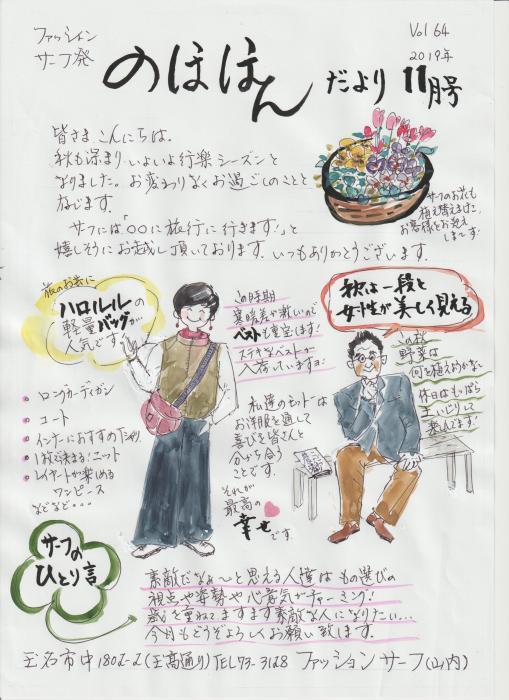 ファッション
サーフ発
のほほん だより 11月号
Vol 64
2019年
皆さま、こんにちは。
秋も深まり、いよいよ行楽シーズンと
なりました。お変わりなくお過ごしのことと
存じます。
サーフには「○○に旅行に行きます!」と
嬉しそうにお越し頂いております。いつもありがとうございます。
サーフのお花も
植え替えまして、
お客様をお迎え
しま〜す!
旅のお供に
ハロルルの
軽量バッグが…
人気です
この時期
寒暖差が激しいので
ベストも重宝します!
ステキなベストが
入荷していますヨ!
秋は一段と
女性が美しく見える
この秋
野菜は
何を植えようかな
休日はもっぱら
土いじりして
楽しんでます!
ロングカーディガン
コート
インナーにおすすめのTシャツ
1枚で決まる!ニット
レイヤードが楽しめる
ワンピース
などなど・・・
私達のモットーは
お洋服を通して
喜びを皆さんと
分かち合う
ことです。
それが
最高の
幸せです
サーフの
ひとり言
素敵だなぁ〜と思える人達は もの選びの
視点や姿勢や心意気がチャーミング!
歳を重ねてますます素敵な人になりたい…
今月もどうぞよろしくお願い致します。
玉名市中1802-2(玉高通り)TEL73-3128 ファッションサーフ(山内)